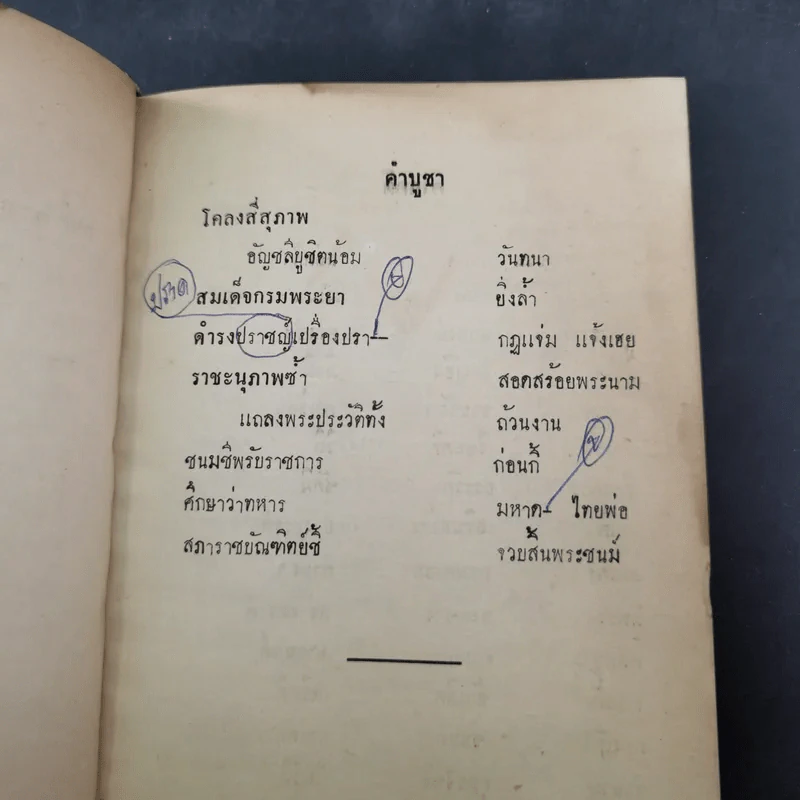 คำบูชา
โคลงสี่สุภาพ
อัญชลียูชิตน้อม วันทนา
ปราด สมเด็จกรมพระยา ยิ่งล้ำ
ดำรงปราชญ์เปรื่องปรา– กฏแจ่ม แจ้งเฮย
ราชะนุภาพซ้ำ สอดสร้อยพระนาม
แถลงพระประวัติทั้ง ถ้วนงาน
ชนมชีพรับราชการ ก่อนกี้
ศึกษาว่าทหาร มหาด– ไทยพ่อ
สภาราชบัณฑิตย์ชี้ จวบสิ้นพระชนม์